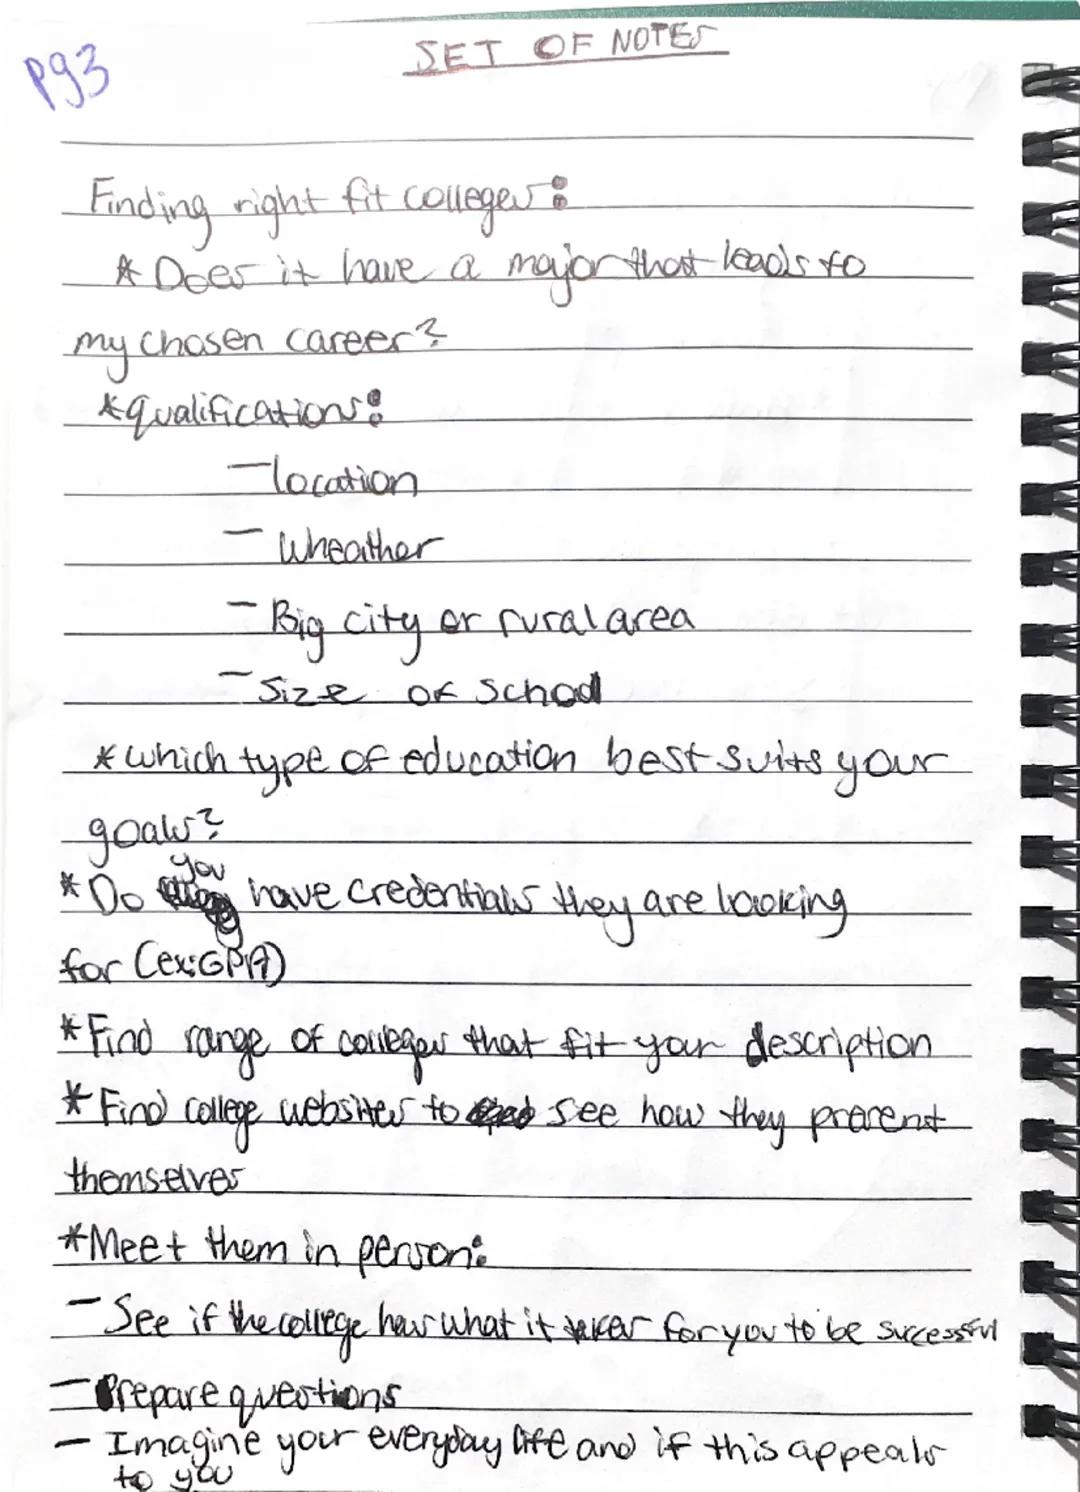 Pg3
SET OF NOTES
Finding right fit colleges:
* Does it have a major that leads to
my chosen career?
* qualifications:
- location
- Wheather
- Big city or rural area
- Size of School
* which type of education best suits your
goals?
you
* Do have credentials they are looking
for (ex:GPA)
* Find range of colleges that fit your description
* Find college websites to see how they present
themselves
* Meet them in person:
- See if the college has what it takes for you to be successful
- Prepare questions
- Imagine your everyday life and if this appeals
to you